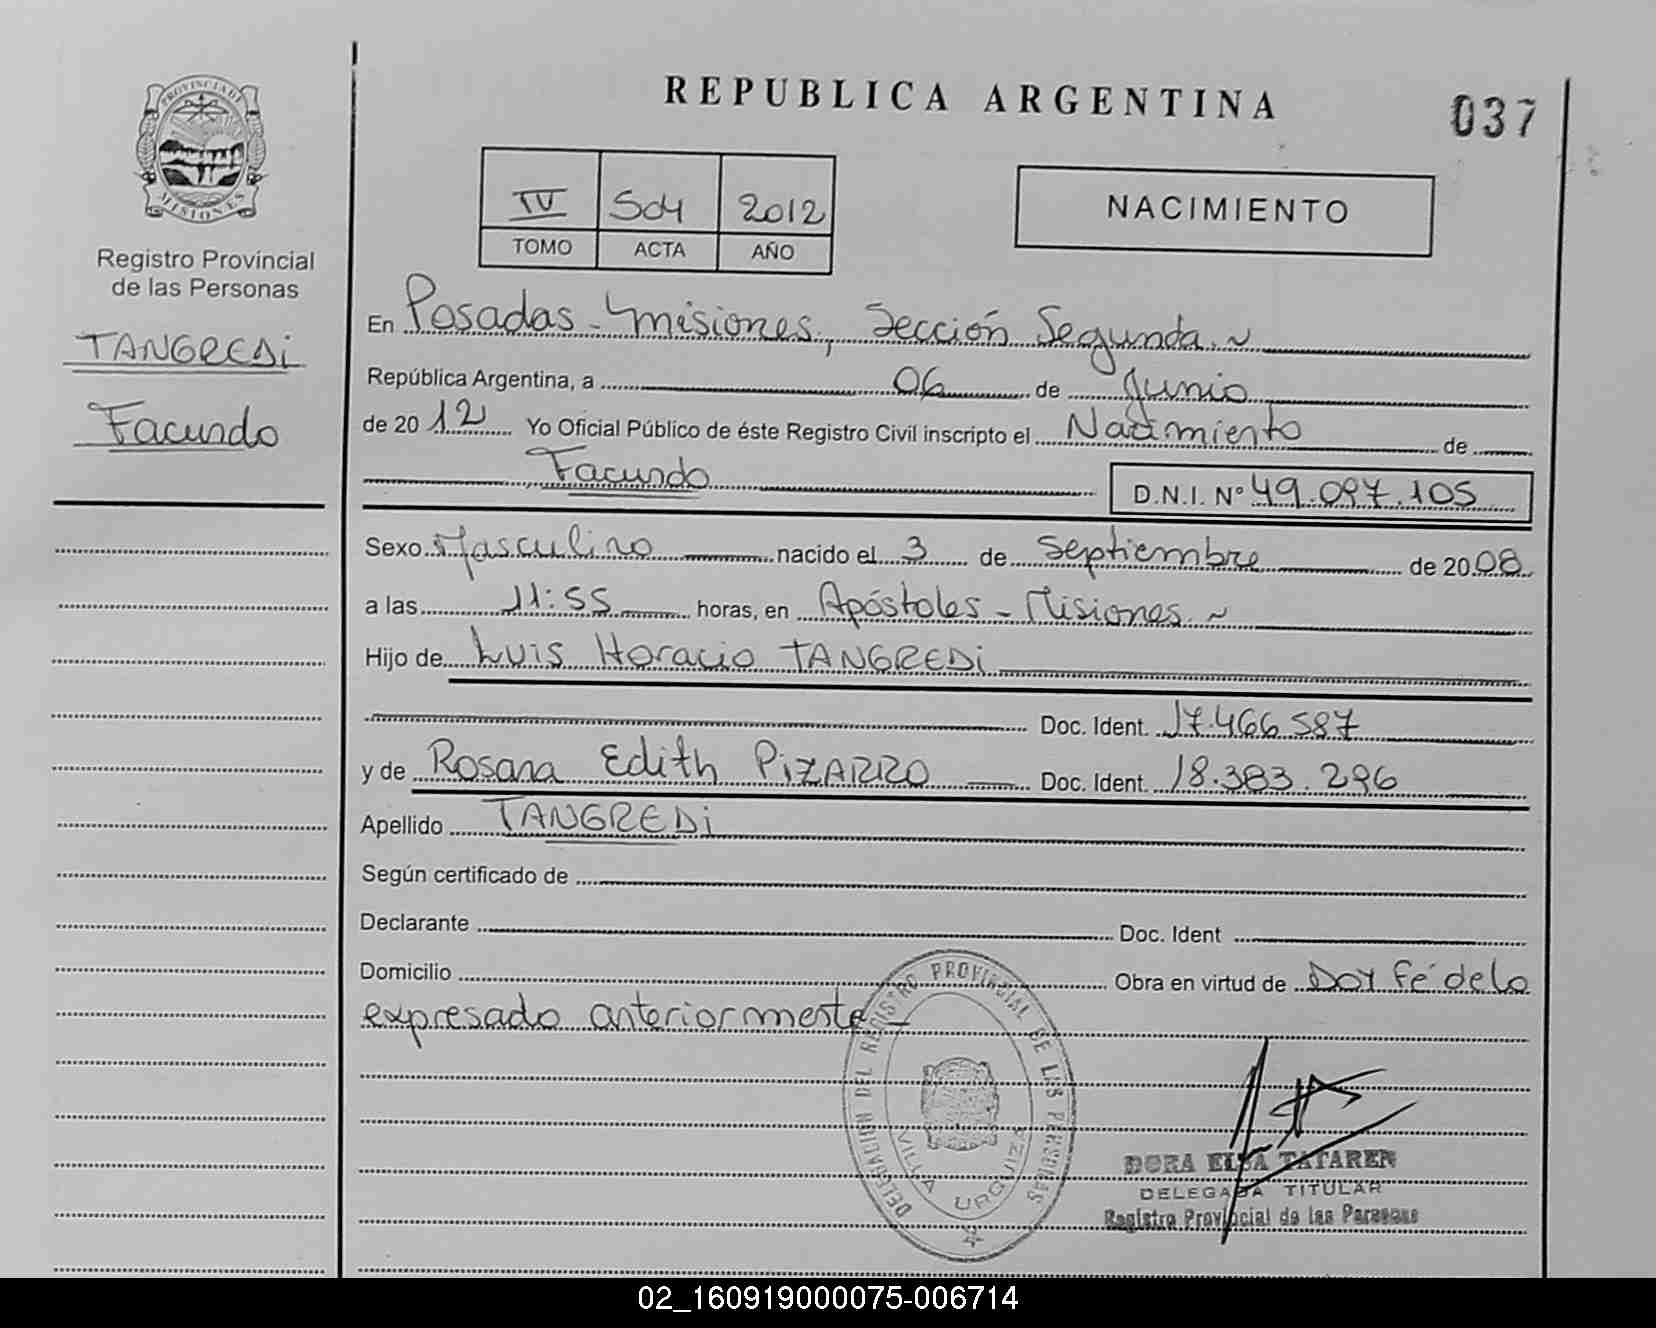 REPUBLICA ARGENTINA
037
PROVINCIA DE
MISIONES
Registro Provincial
de las Personas
TANGREDi
Facundo
IV 504 2012
TOMO ACTA AÑO
NACIMIENTO
En Posadas - Misiones, Sección Segunda.~
República Argentina, a 06 de Junio
de 2012 Yo Oficial Público de éste Registro Civil inscripto el Nacimiento de
Facundo
D.N.I. N° 49.097.105
Sexo Masculino nacido el 3 de Septiembre de 2008
a las 11:55 horas, en Apóstoles - Misiones.~
Hijo de Luis Horacio TANGREDi
Doc. Ident. 17.466.587
y de Rosana Edith PiZARRO Doc. Ident. 18.383.296
Apellido TANGREDi
Según certificado de
Declarante Doc. Ident
Domicilio Obra en virtud de Doy fé de lo
expresado anteriormente -
DELEGACION DEL REGISTRO PROVINCIAL DE LAS PERSONAS
VILLA URQUIZA
DORA ELSA TATAREN
DELEGADA TITULAR
Registro Provincial de las Personas
02_160919000075-006714